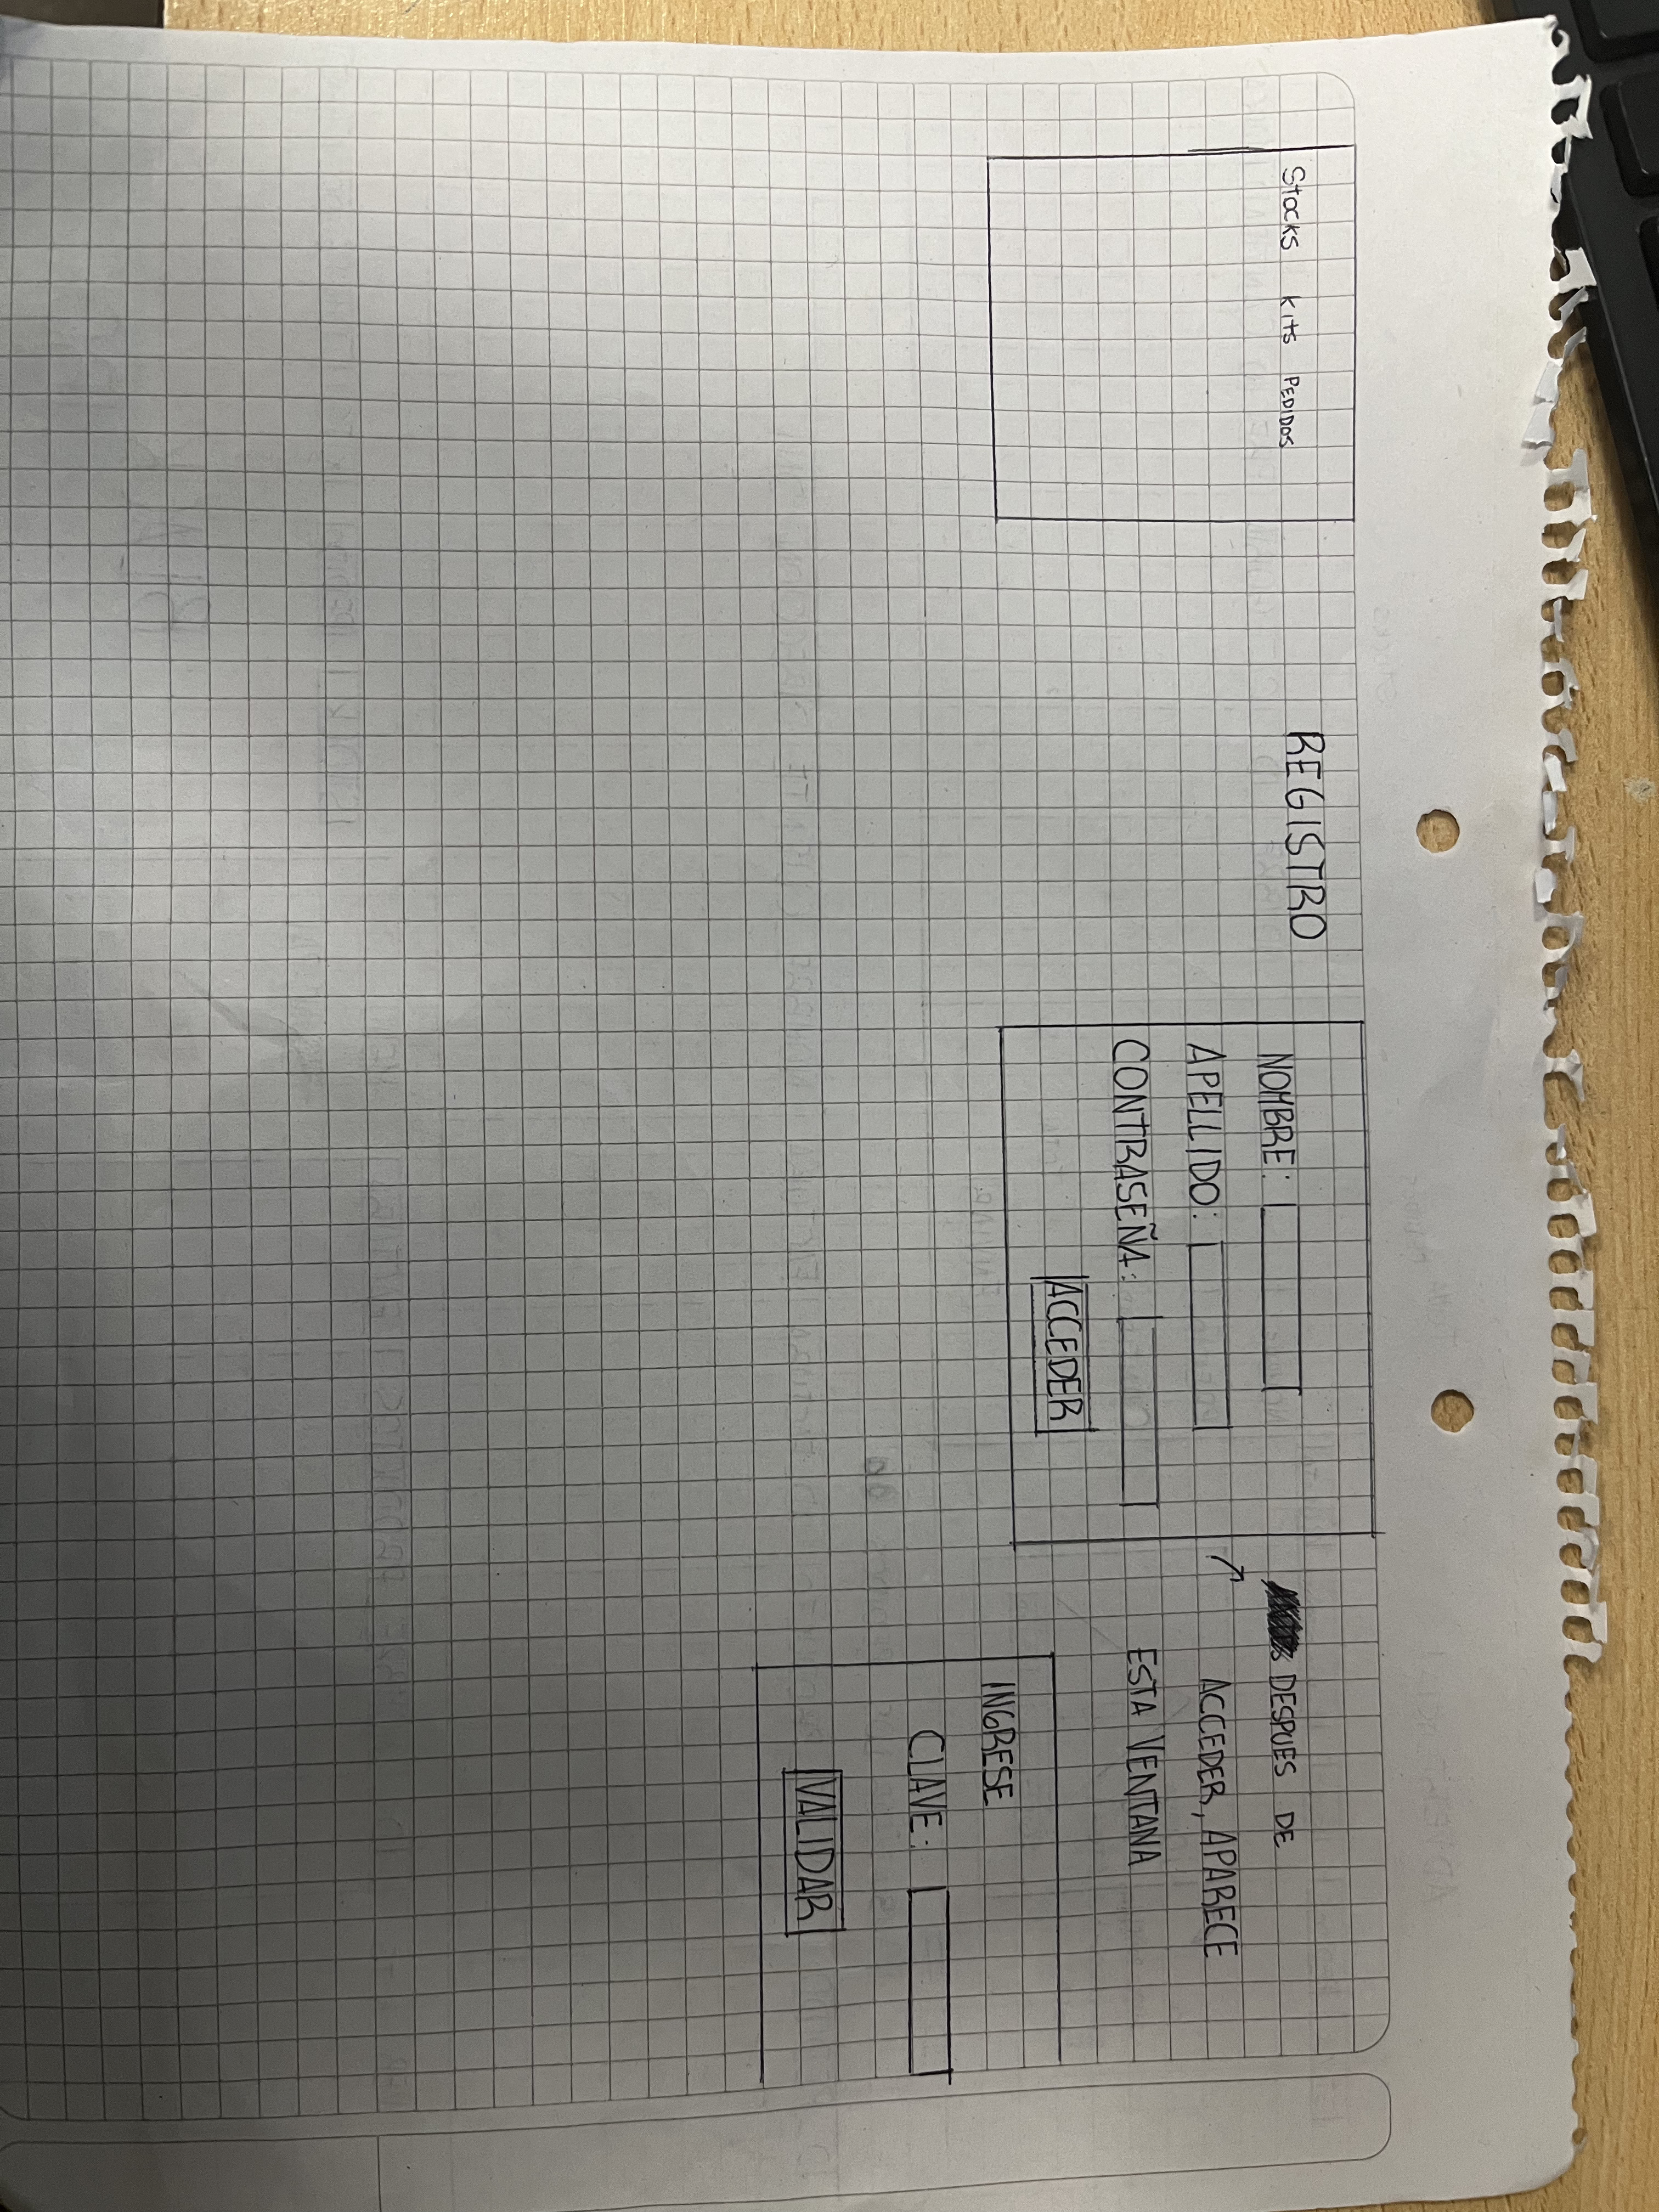 Stocks kits PEDIDOS
REGISTRO
NOMBRE:
APELLIDO:
CONTRASEÑA:
ACCEDER
DESPUES DE
ACCEDER, APARECE
ESTA VENTANA
INGRESE
CLAVE:
VALIDAR